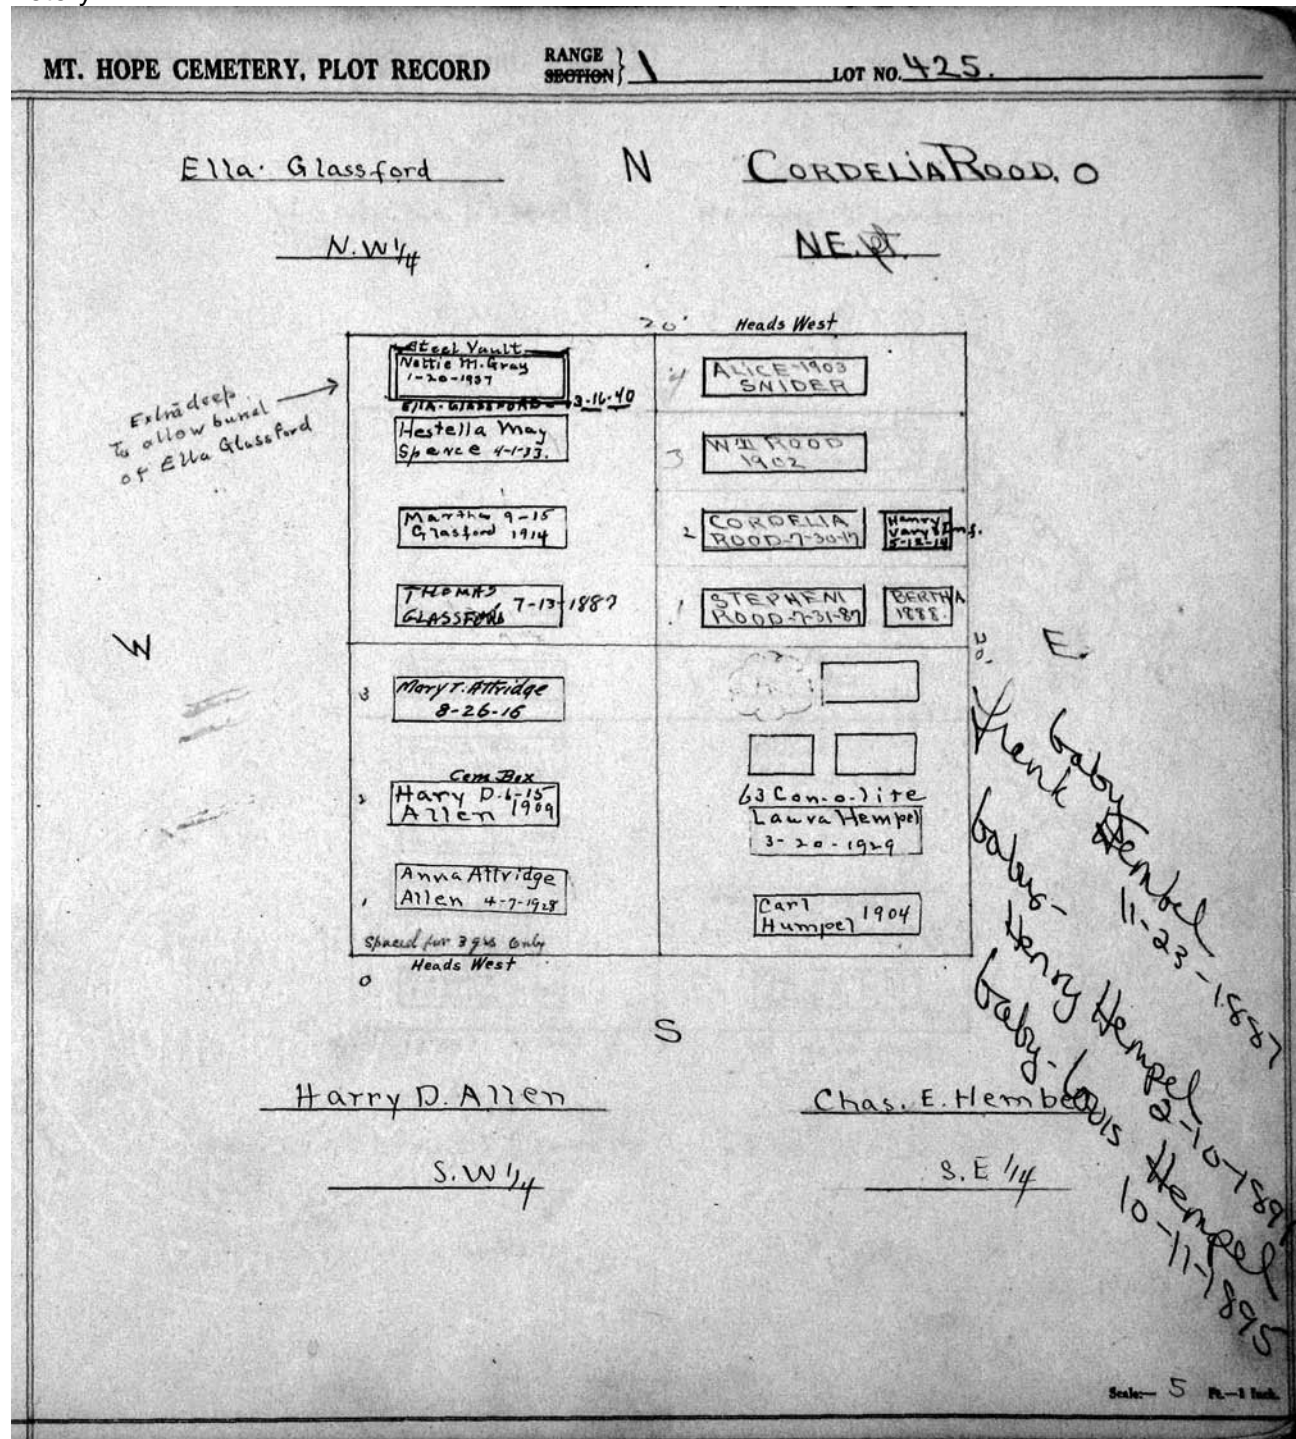 MT. HOPE CEMETERY, PLOT RECORD RANGE SECTION } 1 LOT NO. 425.
Ella. Glassford N CORDELIA ROOD. O
N.W 1/4 N.E. pt.
20' Heads West
Steel Vault
Nettie M. Gray
1-20-1937
ELLA. GLASSFORD 3-16-40
Extra deep
To allow burial
of Ella Glassford
Hestella May
Spence 4-1-33.
Martha 9-15
Glasford 1914
THOMAS
GLASSFORD 7-13-1887
4 ALICE-1903
SNIDER
3 WM ROOD
1902
2 CORDELIA
ROOD-7-30-17
Henry
Vary Inf.
5-12-14
1 STEPHEN
ROOD-7-31-87
BERTHA
1888.
W
20'
E.
3 Mary T. Attridge
8-26-16
Cem Box
2 Hary D. 6-15
Allen 1909
Anna Attridge
1 Allen 4-7-1928
Spaced for 3 grs Only
Heads West
O
63 Con-o-lite
Laura Hempel
3-20-1929
Carl
Humpel 1904
S
baby
Frank Hembel
11-23-1887
baby-
Henry Hempel
2-10-189
baby-Louis Hempel
10-11-1895
Harry D. Allen Chas. E. Hembel
S.W 1/4 S.E 1/4
Scale:— 5 Ft.—1 Inch.